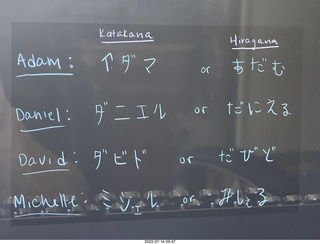 Katakana Hiragana
Adam: アダマ or あだむ
Daniel: ダニエル or だにえる
David: ダビド or だびど
Michelle: ミシェル or みしぇる
2022-07-14 09:47